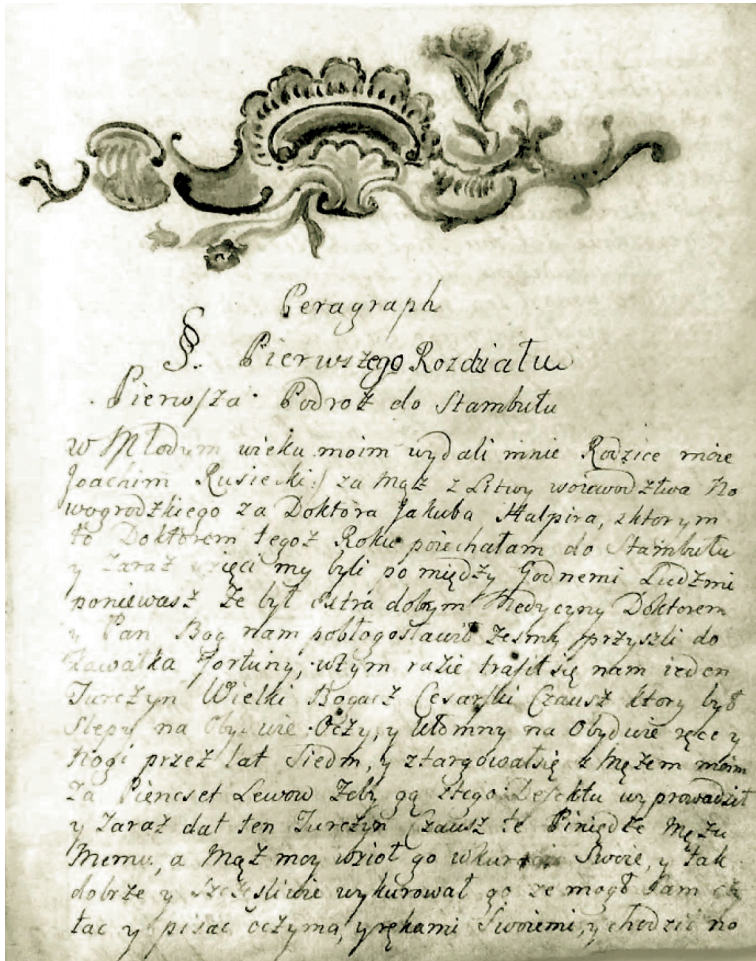 Peragraph
§. Pierwszego Rozdziału
Pierwsza Podroż do Stambułu
w Młodym wieku moim wydali mnie Rodzice moie
Joachim Rusiecki / za Mąż z Litwy woiewodztwa No
wogrodzkiego za Doktora Jakuba Halpira, zktorym
to Doktorem tegoż Roku poiechałam do Stambułu
y zaraz wzięci my byli pomiędzy Godnemi Ludzmi
poniewasz że był Extra dobrym Medycyny Doktorem
y Pan Bog nam pobłogosławił żeśmy przyszli do
Kawałka Fortuny, wtym razie trafił się nam ieden
Turczyn Wielki Bogacz Cesarski Czausz ktory był
Slepy na Obydwie Oczy, y Ułomny na Obydwie ręce y
Nogi przez lat Siedm, y ztargowałsię z Mężem moim
Za Piencset Lewow żeby gą ztego Defektu wyprowadził
y Zaraz dał ten Turczyn Czausz te Piniędze Mężu
Memu, a Mąż moy wzioł go Swoie, y tak
dobrze y szczesliwie wykurował go ze mogł Sam czy
tac y pisac oczyma, y rękami Swoiemi, y chodzic no